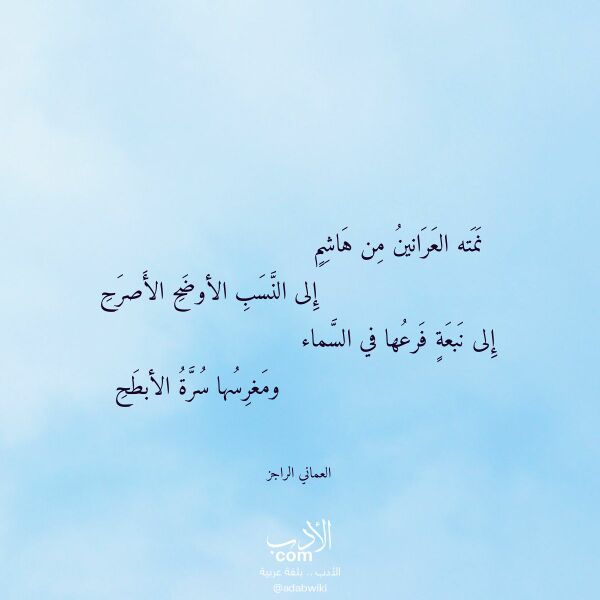 نَمَته العَرَانينُ مِن هَاشِمٍ
إِلى النَّسَبِ الأوضَحِ الأَصرَحِ
إِلى نَبعَةٍ فَرعُها في السَّماء
ومَغرِسُها سُرَّةُ الأبطَحِ
العماني الراجز
الأدب
.com
الأدب .. بلغة عربية
@adabwiki